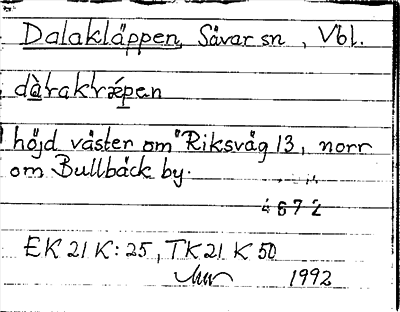 Dalakläppen, Sävar sn, Vbl.
dàrakrǽpen
höjd väster om Riksväg 13, norr
om Bullbäck by.
4672
EK 21 K: 25, TK 21 K SO
1992